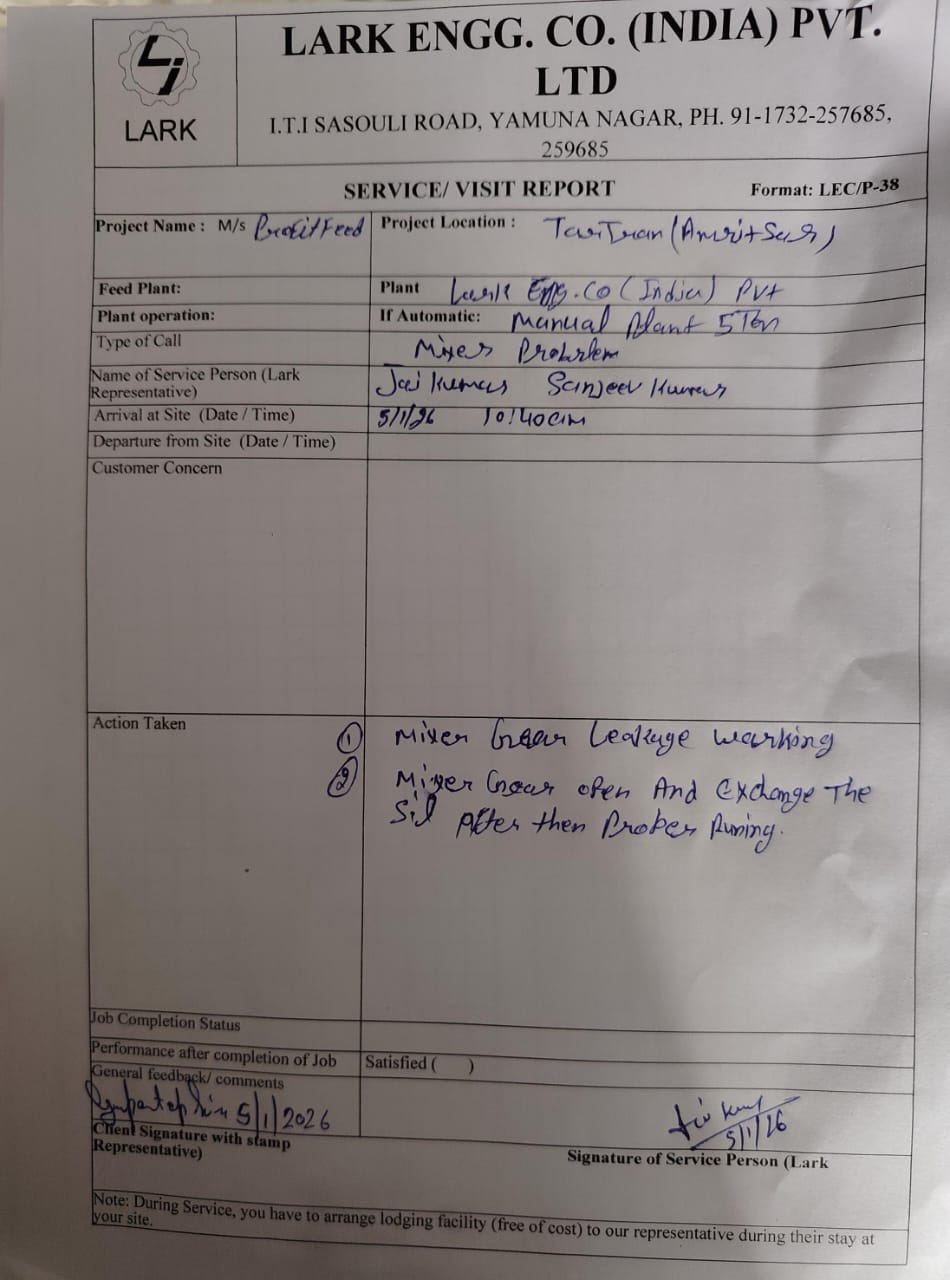 LARK ENGG. CO. (INDIA) PVT.
LTD
LARK
I.T.I SASOULI ROAD, YAMUNA NAGAR, PH. 91-1732-257685,
259685
SERVICE/ VISIT REPORT
Format: LEC/P-38
Project Name : M/s ProfitFeed
Project Location : TarnTran (Amritsar)
Feed Plant:
Plant Lark Engg. Co (India) Pvt
Plant operation:
If Automatic: Manual Plant 5 Ton
Type of Call
Mixer Probrlem
Name of Service Person (Lark
Representative)
Jai Kumar Sanjeev Kumar
Arrival at Site (Date / Time)
5/1/26 10:40am
Departure from Site (Date / Time)
Customer Concern
Action Taken
① Mixer Gear Leakage warking
② Mixer Gear open And Exchange The
Sil After then Proper Runing.
Job Completion Status
Performance after completion of Job
Satisfied ( )
General feedback/ comments
5/1/2026
5/1/26
Client Signature with stamp
Representative)
Signature of Service Person (Lark
Note: During Service, you have to arrange lodging facility (free of cost) to our representative during their stay at
your site.